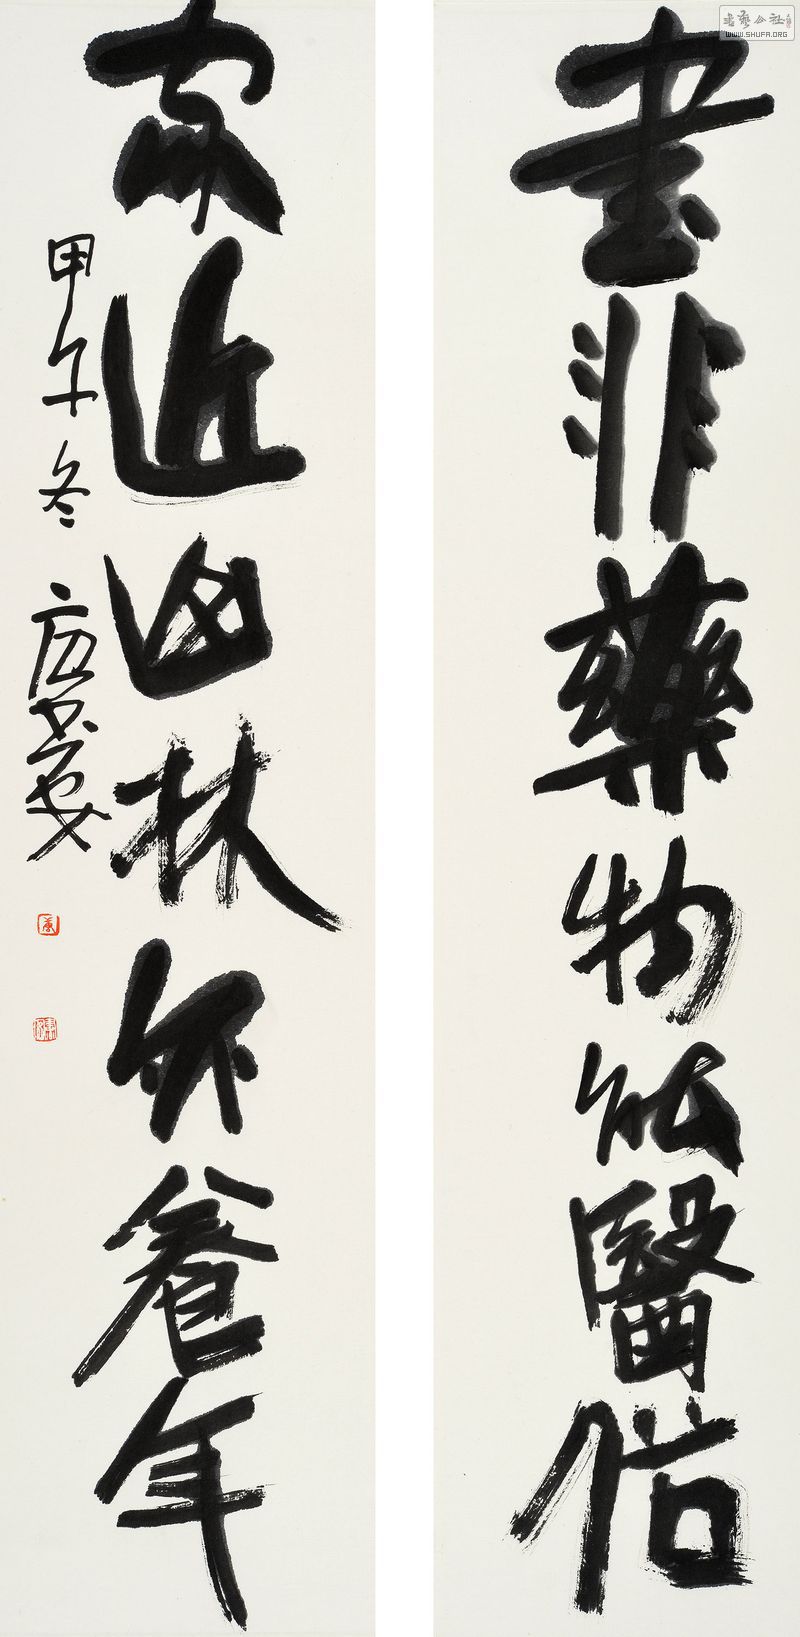 書非藥物能醫俗
家近山林養年
甲午冬
書藝公社
WWW.SHUFA.ORG